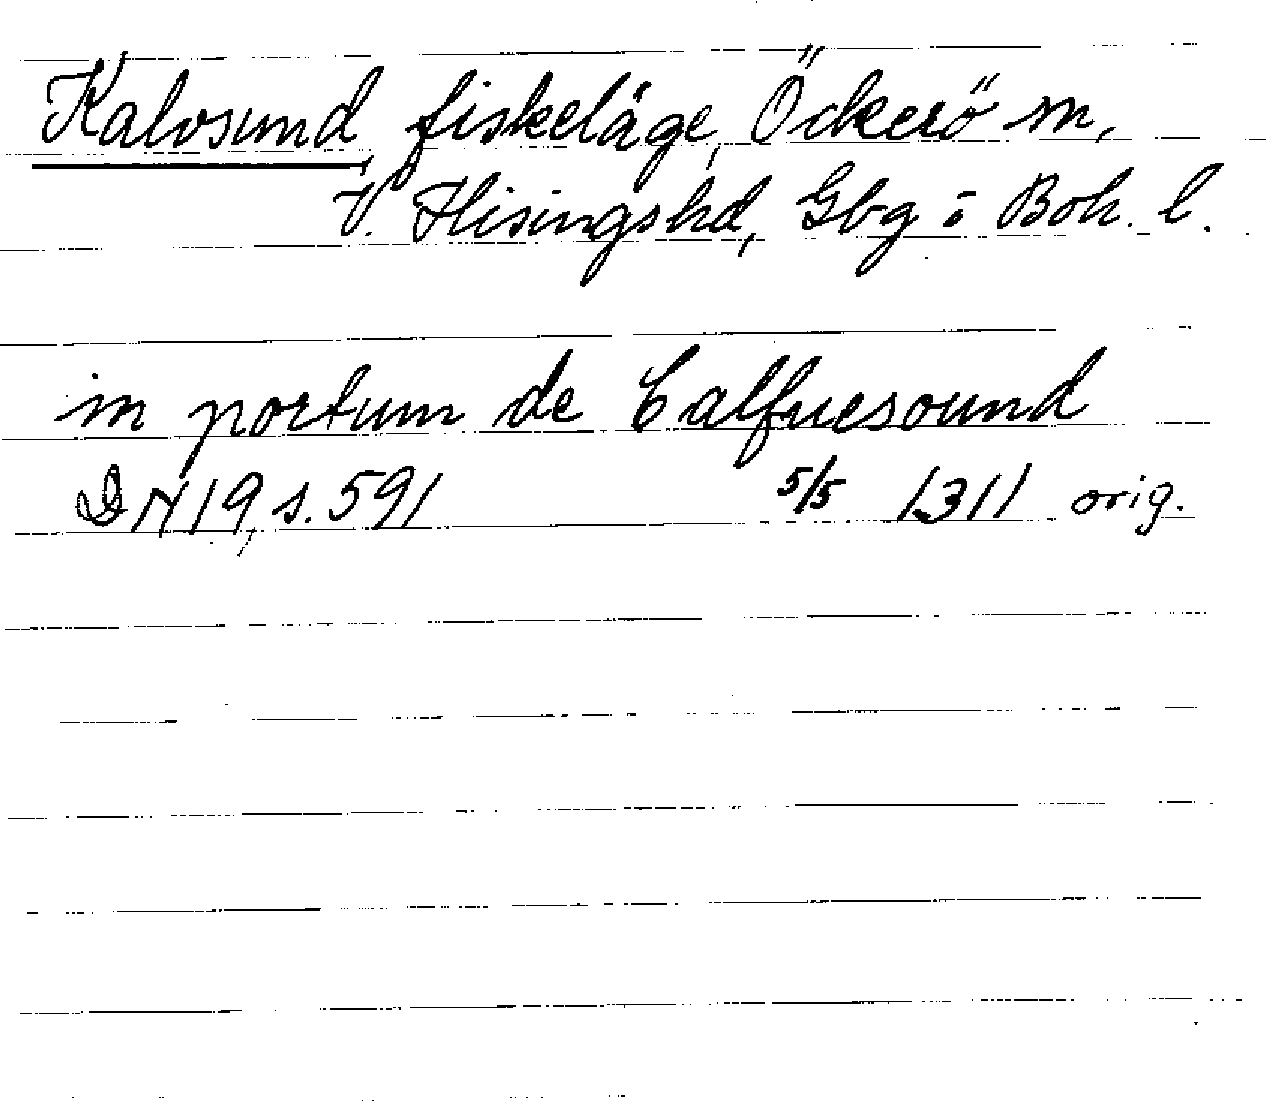 Kalvsund, fiskeläge, Öckerö sn,
V. Hisings hd, Gbg o Boh. l.
in portum de Calfuesound
DN 19, s. 591 5/5 1311 orig.